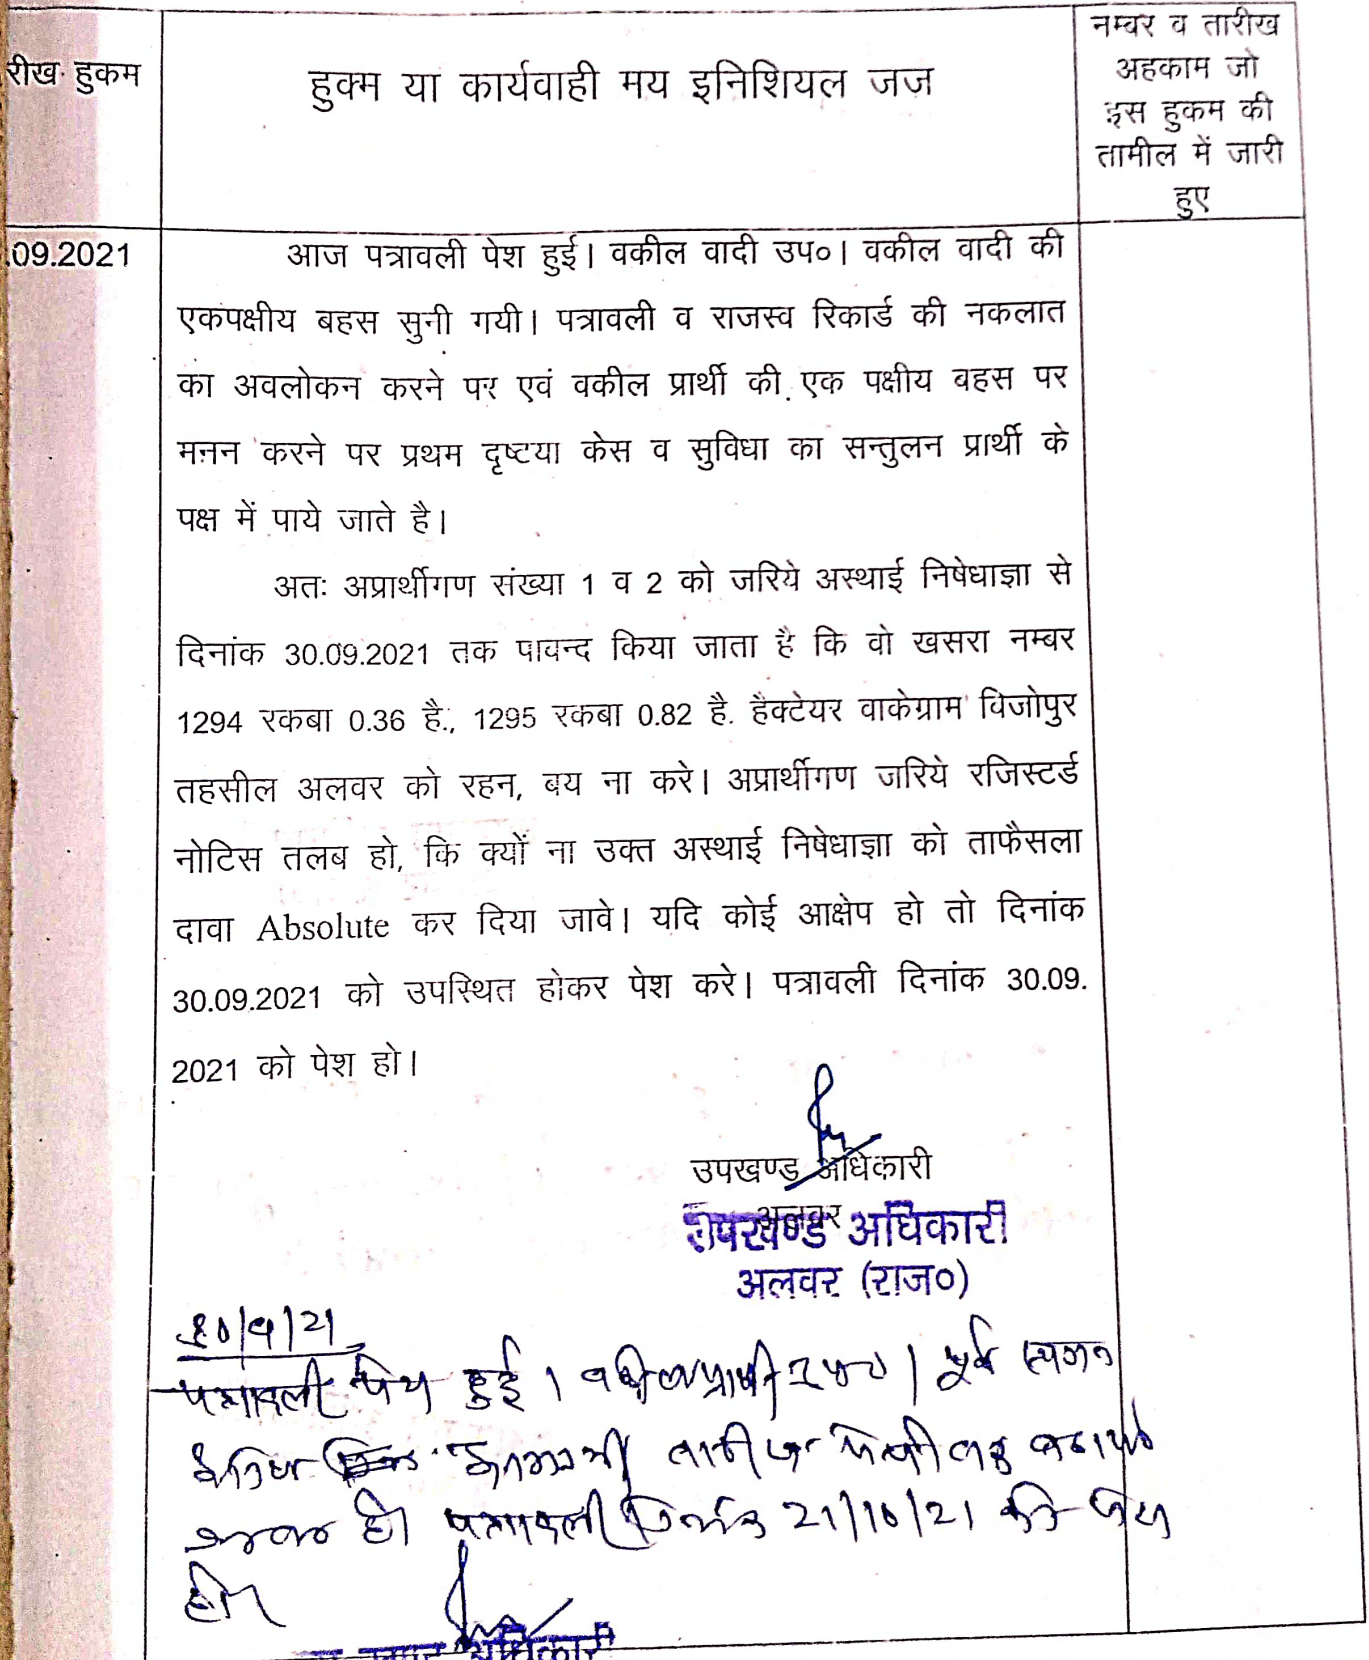 रीख हुकम
हुक्म या कार्यवाही मय इनिशियल जज
नम्बर व तारीख
अहकाम जो
इस हुकम की
तामील में जारी
हुए
.09.2021
आज पत्रावली पेश हुई। वकील वादी उप०। वकील वादी की
एकपक्षीय बहस सुनी गयी। पत्रावली व राजस्व रिकार्ड की नकलात
का अवलोकन करने पर एवं वकील प्रार्थी की एक पक्षीय बहस पर
मनन करने पर प्रथम दृष्टया केस व सुविधा का सन्तुलन प्रार्थी के
पक्ष में पाये जाते है।
अतः अप्रार्थीगण संख्या 1 व 2 को जरिये अस्थाई निषेधाज्ञा से
दिनांक 30.09.2021 तक पाबन्द किया जाता है कि वो खसरा नम्बर
1294 रकबा 0.36 है., 1295 रकबा 0.82 है. हैक्टेयर वाकेग्राम विजोपुर
तहसील अलवर को रहन, बय ना करे। अप्रार्थीगण जरिये रजिस्टर्ड
नोटिस तलब हो, कि क्यों ना उक्त अस्थाई निषेधाज्ञा को ताफैसला
दावा Absolute कर दिया जावे। यदि कोई आक्षेप हो तो दिनांक
30.09.2021 को उपस्थित होकर पेश करे। पत्रावली दिनांक 30.09.
2021 को पेश हो।
उपखण्ड अधिकारी
अलवर
उपखण्ड अधिकारी
अलवर (राज०)
30/9/21
पत्रावली पेश हुई। वकील प्रार्थी उप०। पूर्व स्थगन
आगामी तारीख पेशी तक
पत्रावली दिनांक 21/10/21 को पेश
हो।
अधिकारी